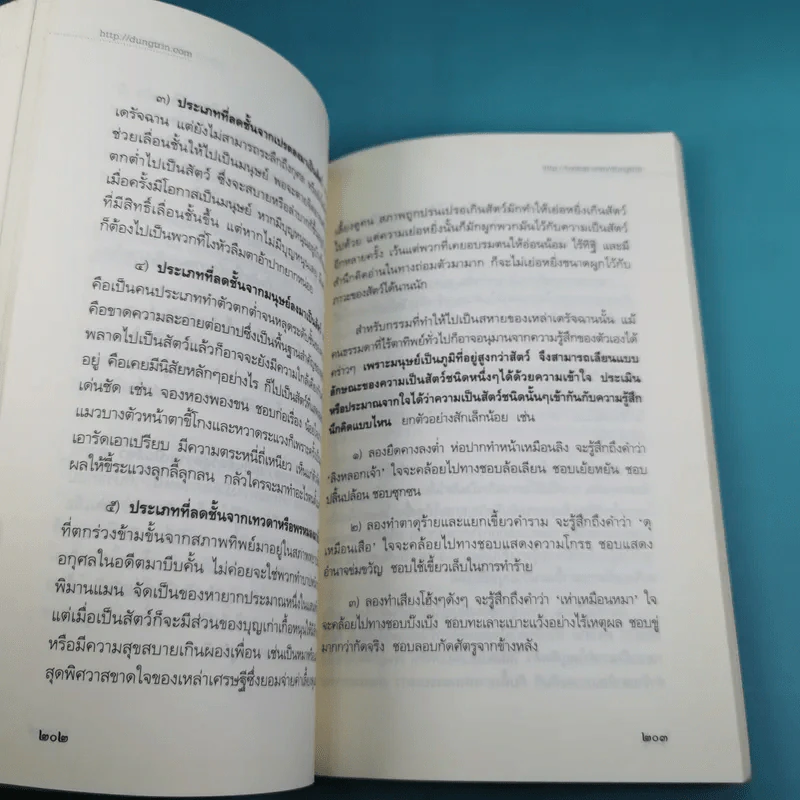 http://dungtrin.com
๓) ประเภทที่ลดชั้นจากเปรตลงมาเป็น
เดรัจฉาน แต่ยังไม่สามารถระลึกถึงกุศล
ช่วยเลื่อนชั้นให้ไปเป็นมนุษย์ พอจะตาย
ตกต่ำไปเป็นสัตว์ ซึ่งจะสบายหรือลำบาก
เมื่อครั้งมีโอกาสเป็นมนุษย์ หากมีบุญหนุน
ที่มีสิทธิ์เลื่อนชั้นขึ้น แต่หากไม่มีบุญหนุน
ก็ต้องไปเป็นพวกที่โงหัวลืมตาอ้าปากยากหน่อย
๔) ประเภทที่ลดชั้นจากมนุษย์ลงมาเป็น
คือเป็นคนประเภททำตัวตกต่ำจนหลุดระดับ
คือขาดความละอายต่อบาปซึ่งเป็นพื้นฐานสำคัญ
พลาดไปเป็นสัตว์แล้วก็อาจจะยังมีความใกล้เคียง
อยู่ คือเคยมีนิสัยหลักๆอย่างไร ก็ไปเป็นสัตว์
เด่นชัด เช่น จองหองพองขน ชอบก่อเรื่อง
แมวบางตัวหน้าตาขี้โกงและหวาดระแวงก็เพราะ
เอารัดเอาเปรียบ มีความตระหนี่ถี่เหนียว
ผลให้ขี้ระแวงลุกลี้ลุกลน กลัวใครจะมาทำอะไร
๕) ประเภทที่ลดชั้นจากเทวดาหรือพรหม
ที่ตกร่วงข้ามขั้นจากสภาพทิพย์มาอยู่ในสภาพ
อกุศลในอดีตมาบีบคั้น ไม่ค่อยจะใช่พวกทำบาป
พิมานแมน จัดเป็นของหายากประมาณหนึ่งใน
แต่เมื่อเป็นสัตว์ก็จะมีส่วนของบุญเก่าเกื้อหนุนให้
หรือมีความสุขสบายเกินผองเพื่อน เช่นเป็นหมา
สุดพิศวาสขาดใจของเหล่าเศรษฐีซึ่งยอมจ่ายค่าเลี้ยงดู
๒๐๒
เลี้ยงดูคน สภาพถูกปรนเปรอเกินสัตว์มักทำให้เย่อหยิ่งเกินสัตว์
ไปด้วย แต่ความเย่อหยิ่งนั้นก็มักผูกพวกมันไว้กับความเป็นสัตว์
อีกหลายครั้ง เว้นแต่พวกที่เคยอบรมตนให้อ่อนน้อม ไร้ทิฐิ และมี
สำนึกคิดอ่านในทางถ่อมตัวมามาก ก็จะไม่เย่อหยิ่งขนาดผูกไว้กับ
ภาวะของสัตว์ได้นานนัก
สำหรับกรรมที่ทำให้ไปเป็นสหายของเหล่าเดรัจฉานนั้น แม้
คนธรรมดาที่ไร้ตาทิพย์ทั่วไปก็อาจอนุมานจากความรู้สึกของตัวเองได้
คร่าวๆ เพราะมนุษย์เป็นภูมิที่อยู่สูงกว่าสัตว์ จึงสามารถเลียนแบบ
ลักษณะของความเป็นสัตว์ชนิดหนึ่งๆได้ด้วยความเข้าใจ ประเมิน
หรือประมาณจากใจได้ว่าความเป็นสัตว์ชนิดนั้นๆเข้ากันกับความรู้สึก
นึกคิดแบบไหน ยกตัวอย่างสักเล็กน้อย เช่น
๑) ลองยืดคางลงต่ำ ห่อปากทำหน้าเหมือนลิง จะรู้สึกถึงคำว่า
‘ลิงหลอกเจ้า’ ใจจะคล้อยไปทางชอบล้อเลียน ชอบเย้ยหยัน ชอบ
ปลิ้นปล้อน ชอบซุกซน
๒) ลองทำตาดุร้ายและแยกเขี้ยวคำราม จะรู้สึกถึงคำว่า ‘ดุ
เหมือนเสือ’ ใจจะคล้อยไปทางชอบแสดงความโกรธ ชอบแสดง
อำนาจข่มขวัญ ชอบใช้เขี้ยวเล็บในการทำร้าย
๓) ลองทำเสียงโฮ้งๆดังๆ จะรู้สึกถึงคำว่า ‘เห่าเหมือนหมา’ ใจ
จะคล้อยไปทางชอบบ๊งเบ๊ง ชอบทะเลาะเบาะแว้งอย่างไร้เหตุผล ชอบขู่
มากกว่ากัดจริง ชอบลอบกัดศัตรูจากข้างหลัง
๒๐๓